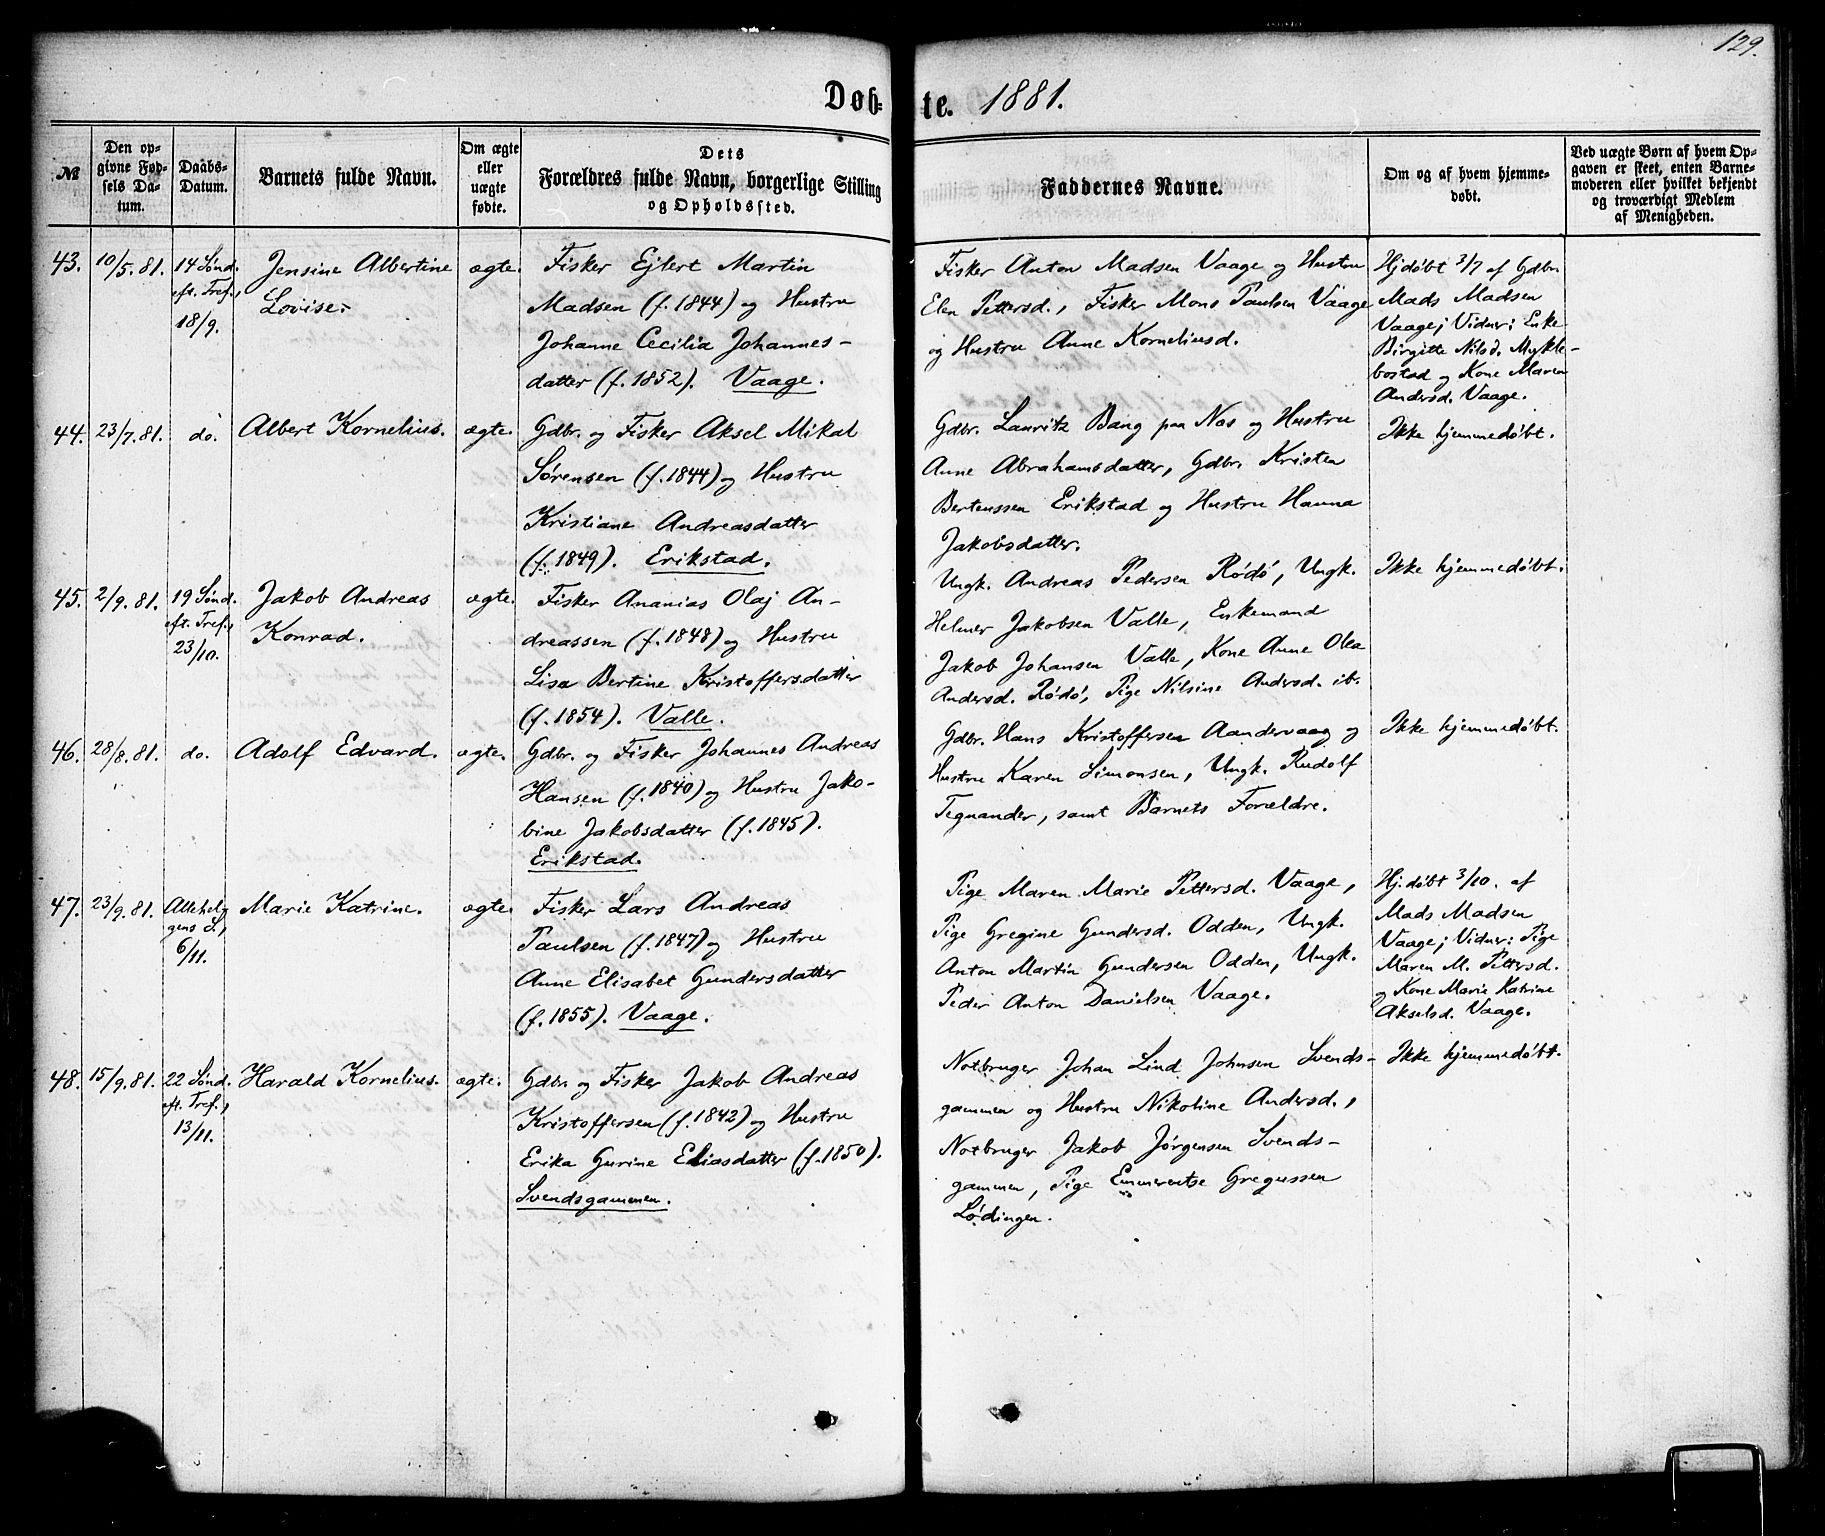 129.
Døb= te. 1881.
№
Den op-
givne Fød-
sels Da-
tum.
Daabs-
Datum.
Barnets fulde Navn.
Om ægte
eller
uægte
fødte.
Dets
Forældres fulde Navn, borgerlige Stilling
og Opholdssted.
Faddernes Navne.
Om og af hvem hjemme-
døbt.
Ved uægte Børn af hvem Op-
gaven er skeet, enten Barne-
moderen eller hvilket bekjendt
og troværdigt Medlem
af Menigheden.
43. 10/5.81. 14 Sønd.
eft. Tref.,
18/9.
Jensine Albertine
Lovise.
ægte.
Fisker Ejlert Martin
Madsen (f. 1844) og Hustru
Johanne Cecilia Johannes-
datter (f. 1852). Vaage.
Fisker Anton Madsen Vaage og Hustru
Elen Pettersd., Fisker Mons Paulsen Vaage
og Hustru Anne Korneliusd.
Hjdøbt 3/7 af Gdbr.
Mads Madsen
Vaage; Vidner: Enke
Birgitte Nilsd. Mykle-
bostad og Kone Maren
Andersd. Vaage.
44. 23/7.81. do. Albert Kornelius. ægte.
Gdbr. og Fisker Aksel Mikal
Sørensen (f. 1844) og Hustru
Kristiane Andreasdatter
(f. 1849). Erikstad.
Gdbr. Lauritz Bang paa Nos og Hustru
Anne Abrahamsdatter, Gdbr. Kristen
Berteussen Erikstad og Hustru Hanna
Jakobsdatter.
Ikke hjemmedøbt.
45. 2/9.81. 19 Sønd.
eft. Tref.,
23/10.
Jakob Andreas
Konrad.
ægte.
Fisker Ananias Olaj An-
dreassen (f. 1848) og Hustru
Lisa Bertine Kristoffersdatter
(f. 1854). Valle.
Ungk. Andreas Pedersen Rødø, Ungk.
Helmer Jakobsen Valle, Enkemand
Jakob Johansen Valle, Kone Anne Olea
Andersd. Rødø, Pige Nilsine Andersd. ib.
Ikke hjemmedøbt.
46. 28/8.81. do. Adolf Edvard. ægte.
Gdbr. og Fisker Johannes Andreas
Hansen (f. 1840) og Hustru Jako-
bine Jakobsdatter (f. 1845).
Erikstad.
Gdbr. Hans Kristoffersen Aandervaag og
Hustru Karen Simonsen, Ungk. Rudolf
Tegnander, samt Barnets Forældre.
Ikke hjemmedøbt.
47. 23/9.81. Allehelg
gens D.,
6/11.
Marie Katrine. ægte.
Fisker Lars Andreas
Paulsen (f. 1847) og Hustru
Anne Elisabet Gundersdatter
(f. 1855). Vaage.
Pige Maren Marie Pettersd. Vaage,
Pige Gregine Gundersd. Odden, Ungk.
Anton Martin Gundersen Odden, Ungk.
Peder Anton Danielsen Vaage.
Hj.døbt 3/10. af
Mads Madsen
Vaage; Vidner: Pige
Maren M. Pettersd.
og Kone Marie Katrine
Akselsd. Vaage.
48. 15/9.81. 22 Sønd.
eft. Tref.,
13/11.
Harald Kornelius. ægte.
Gdbr. og Fisker Jakob Andreas
Kristoffersen (f. 1842) og Hustru
Erika Gurine Eliasdatter (f. 1850).
Svendsgammen.
Notbruger Johan Lind Johnsen Svends-
gammen og Hustru Nikoline Andersd.,
Notbruger Jakob Jørgensen Svends-
gammen, Pige Emmerentse Gregussen
Lødingen.
Ikke hjemmedøbt.